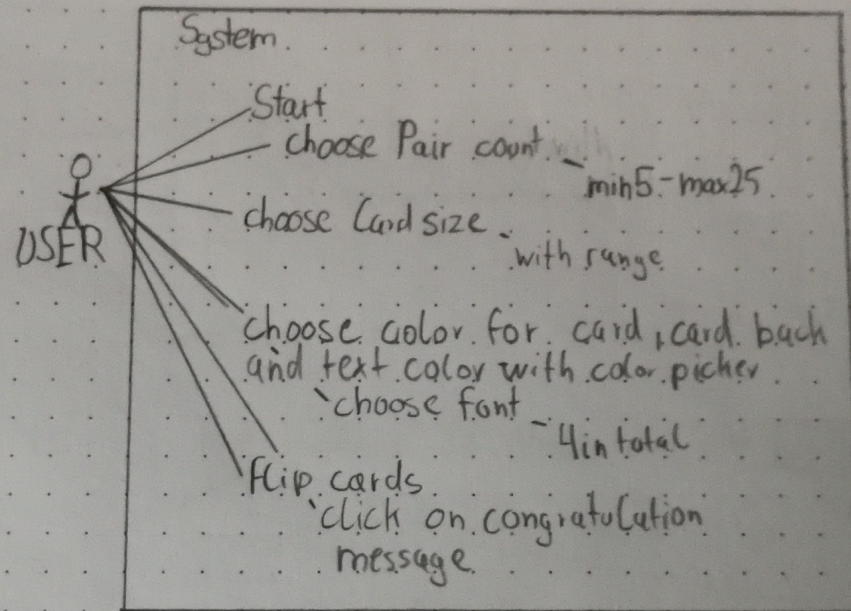 System
Start
choose Pair count
min5-max25
choose Card size
with range
USER
choose color for card, card back
and text color with color picker
choose font
4 in total
flip cards
click on congratulation
message